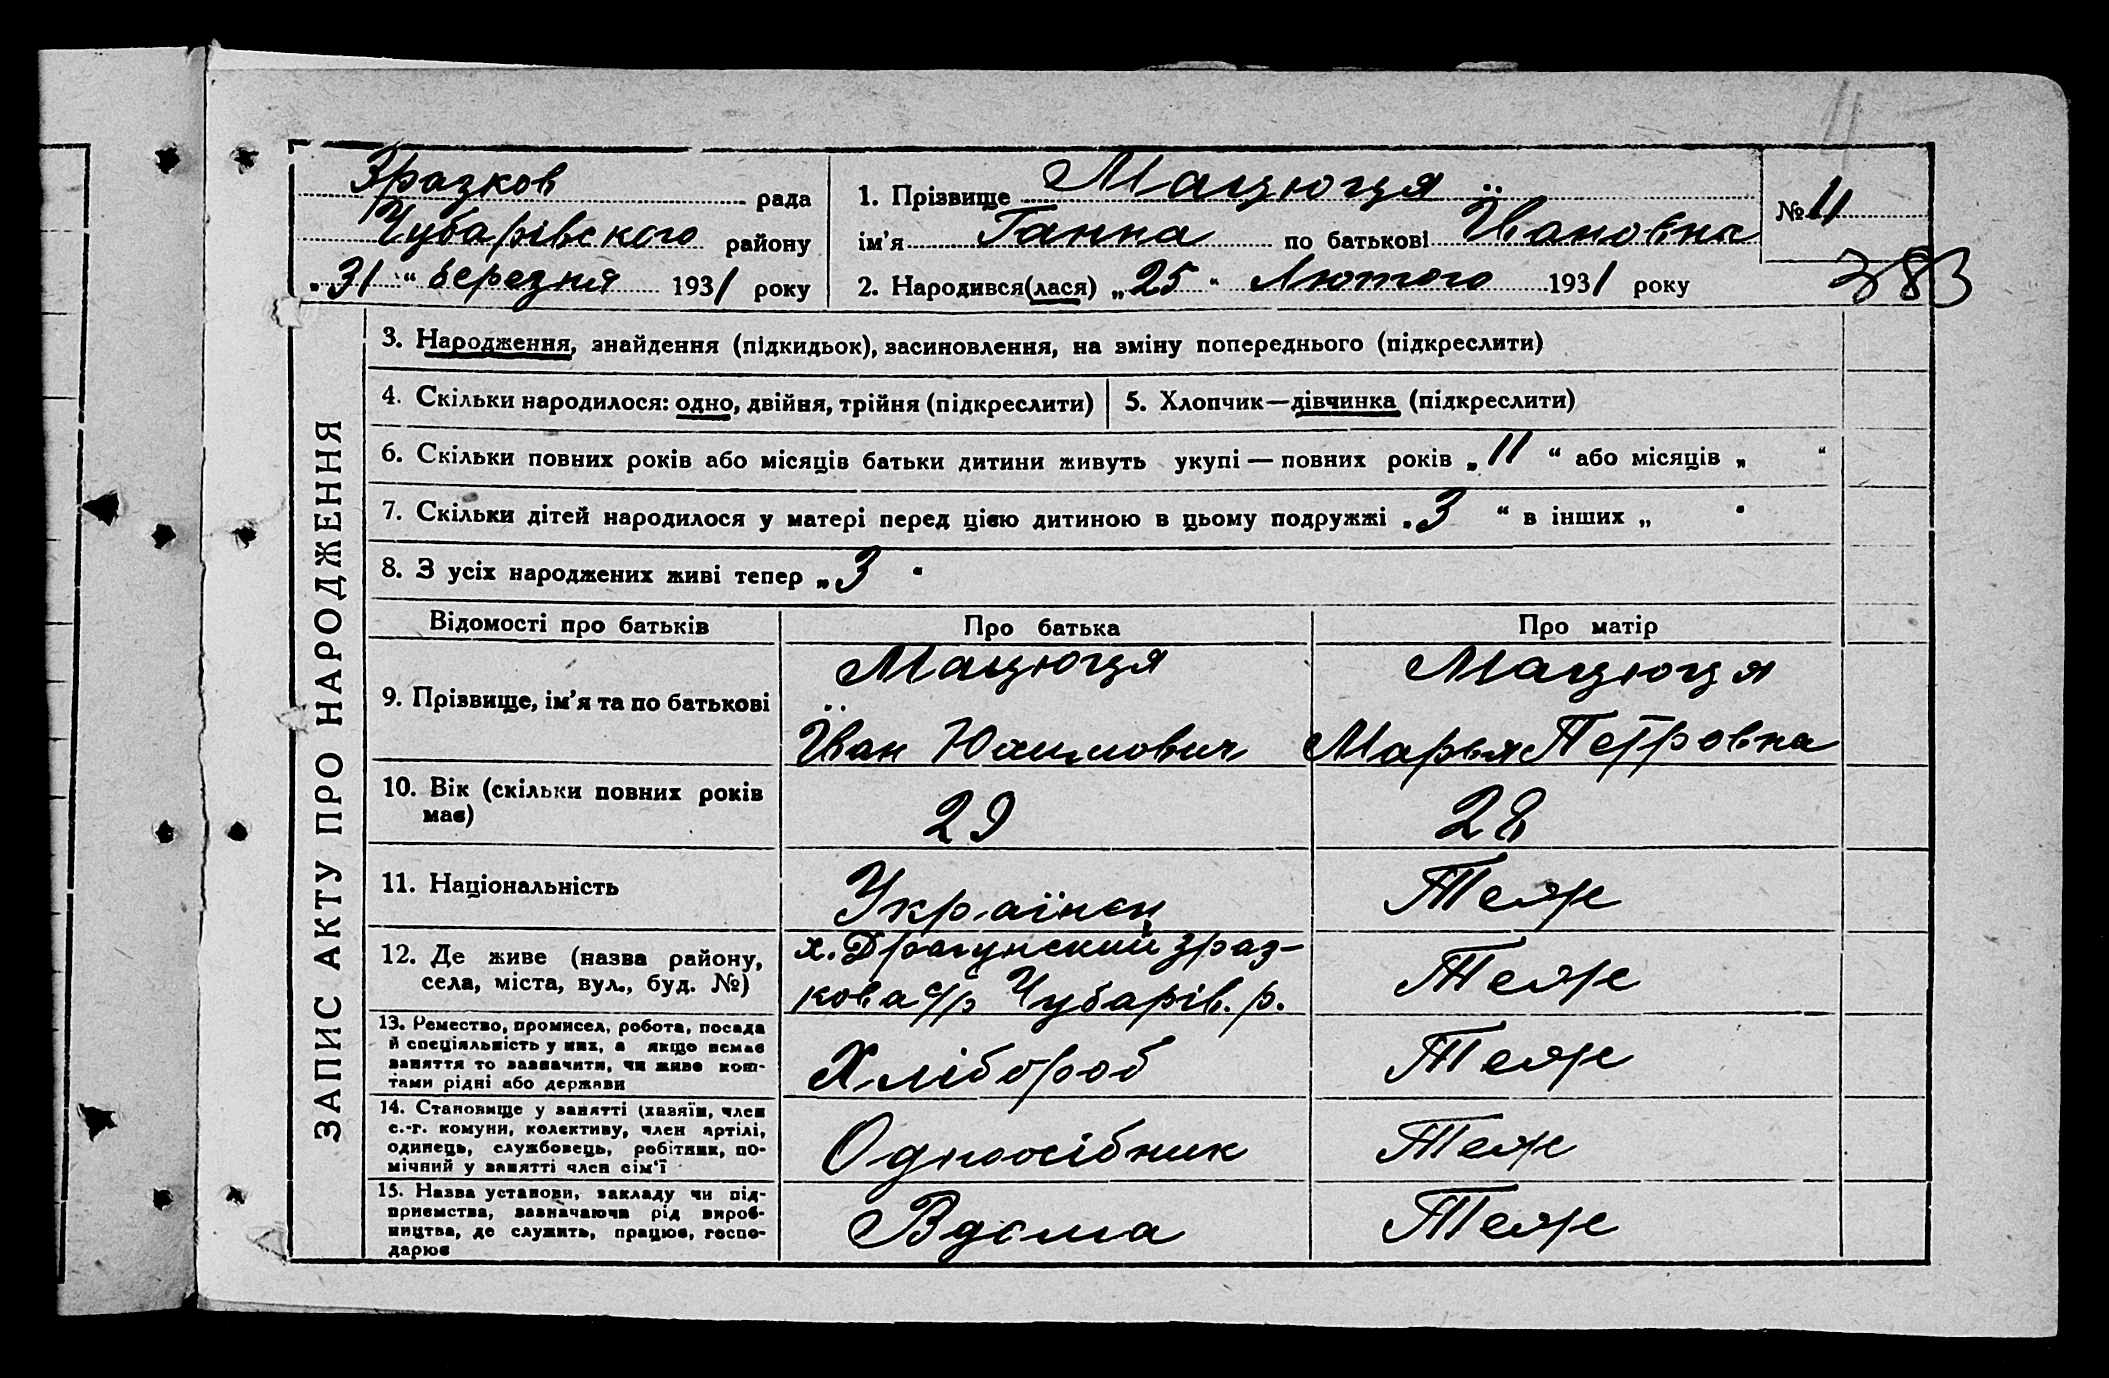 11
Зразков рада
Чубарівского району
„31“ березня 1931 року
1. Прізвище Мацюця
ім’я Ганна по батькові Ївановна
2. Народився(лася) „25“ Лютого 1931 року
№ 11
383
ЗАПИС АКТУ ПРО НАРОДЖЕННЯ
3. Народження, знайдення (підкидьок), засиновлення, на зміну попереднього (підкреслити)
4. Скільки народилося: одно, двійня, трійня (підкреслити)
5. Хлопчик—дівчинка (підкреслити)
6. Скільки повних років або місяців батьки дитини живуть укупі — повних років „11“ або місяців „ “
7. Скільки дітей народилося у матері перед цією дитиною в цьому подружжі „3“ в інших „ “
8. З усіх народжених живі тепер „3“
Відомості про батьків Про батька Про матір
9. Прізвище, ім’я та по батькові
Мацюця
Їван Юхимович
Мацюця
Марья Петровна
10. Вік (скільки повних років
має)
29
28
11. Національність
Українец
Теж
12. Де живе (назва району,
села, міста, вул., буд. №)
х. Драгунский Зраз-
кова с/р Чубарів. р.
Теж
13. Ремество, промисел, робота, посада
й спеціяльність у них, а якщо немає
заняття то зазначити, чи живе кош-
тами рідні або держави
Хлібороб
Теж
14. Становище у занятті (хазяїн, член
с.-г. комуни, колективу, член артілі,
одинець, службовець, робітник, по-
мічний у занятті член сім’ї
Одноосібник
Теж
15. Назва установи, закладу чи під-
приємства, зазначаючи рід вироб-
ництва, де служить, працює, госпо-
дарює
Вдома
Теж